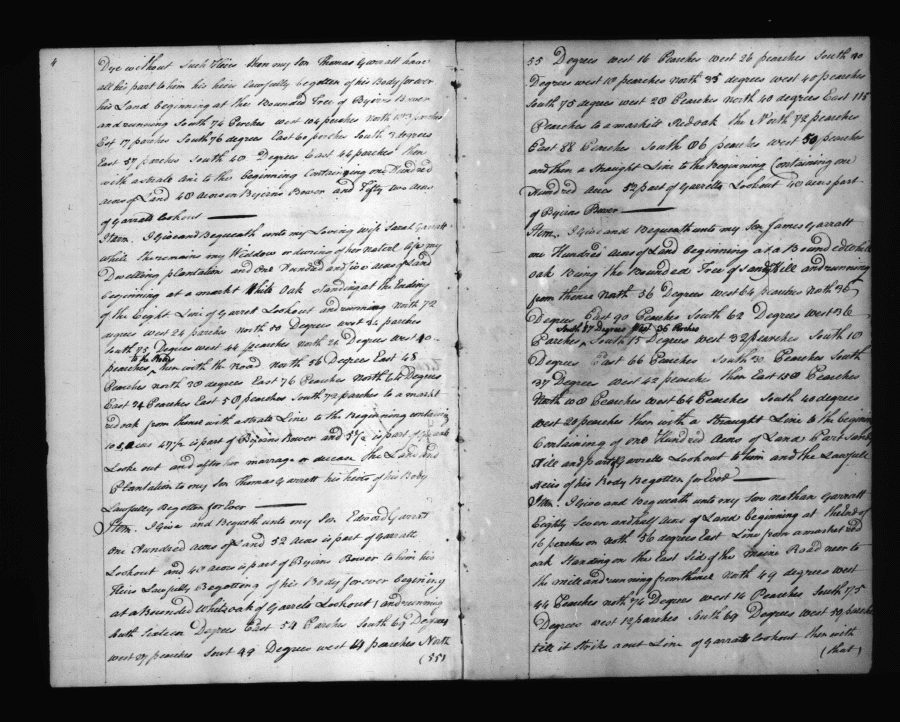 4
Dye without Such Heirs then my Son Thomas Garratt have
all his part to him his heirs Lawfully begotten of his Body for ever
his Land beginning at the Bounded Tree of Byeins Bower
and running South 74 Perches west 104 perches North
East 17 perches South 76 degrees East 60 perches South 3 degrees
East 57 perches South 40 Degrees East 44 perches then
with a strate Line to the beginning Containing one Hundred
acres of Land 48 acres in Byeins Bower and Fifty two acres
of Garratts Lookout
Item. I Give and Bequeath unto my Loving wife Sarah Garratt
while she remains my Widdow or during her natrel Life my
Dwelling plantation and One Hundred and five acres of Land
beginning at a markt White Oak Standing at the Ending
of the Eight Line of Garret Lookout and running North 72
degrees west 24 perches north 50 Degrees west 34 perches
South 75 Degrees west 44 perches north 26 Degrees west 40
to the Road
peaches, then with the Road north 56 Degrees East 48
Peaches north 30 degrees East 76 Peaches North 64 Degrees
East 24 Peaches East 50 peaches South 72 perches to a markt
red oak from thence with a strate Line to the Beginning containing
105 acres 47½ is part of Byeins Bower and 57½ is part of Garratts
Looke out and after her marriage or decease the Land and
Plantation to my Son Thomas Garrett his heirs of his Body
Lawfully Begotten for Ever
Item. I Give and Bequeth unto my Son Edward Garrat
One Hundred acres of Land 52 acres is part of Garratt
Lookout and 48 acres is part of Byeins Bower to him his
Heirs Lawfully Begotting of his Body for ever begining
at a Bounded White oak of Garrets Lookout 1 and running
South Sixteen Degrees East 54 Perches South 67 Degrees
west 37 peaches Sout 49 Degrees west 14 peaches North
(55)
55 Degrees west 16 Pearches west 26 pearches South 30
Degrees west 18 pearches North 35 degrees west 40 pearches
South 75 degrees west 20 Pearches North 40 degrees East 115
Pearches to a markett Red oak the North 72 pearches
East 88 Pearches South 86 peaches west 50 pearches
and then a Straight Line to the Beginning Containing one
Hundred acres 52 part of Garretts Lookout 48 acres part
of Byeins Bower
Item. I Give and Bequeath unto my Son James Garratt
one Hundred acres of Land beginning at a Bounded White
oak Being the Bounded Tree of Sandy Hill and running
from thence North 56 Degrees West 64 pearches North 36
Degrees East 90 Peaches South 62 Degrees west 36
South 87 Degrees West 36 Perches
Pearches, South 15 Degrees west 32 pearches South 10
Degrees East 66 Peaches South 30 Peaches South
37 Degrees West 42 peache then East 138 Peaches
North 108 Peaches west 64 Peaches South 40 degrees
West 20 peaches then with a Straught Line to the beginin
Containing of one Hundred Acres of Land Part Sandy
Hill and part of Garretts Lookout to him and the Lawfull
Heirs of his Body Begotten for Ever
Item. I Give and Bequeath unto my Son Nathan Garratt
Eighty Seven and half acres of Land beginning at the End of
16 perches on North 56 degrees East Line from a markat red
oak Standing on the East Side of the Maine Road near to
the mill and running from thence North 49 degrees west
44 Peaches north 74 Degrees west 14 Peaches South 75
Degrees west 12 parches South 69 Degrees west 59 parches
till it Strikes a out Line of Garratts Lookout then with
(that)